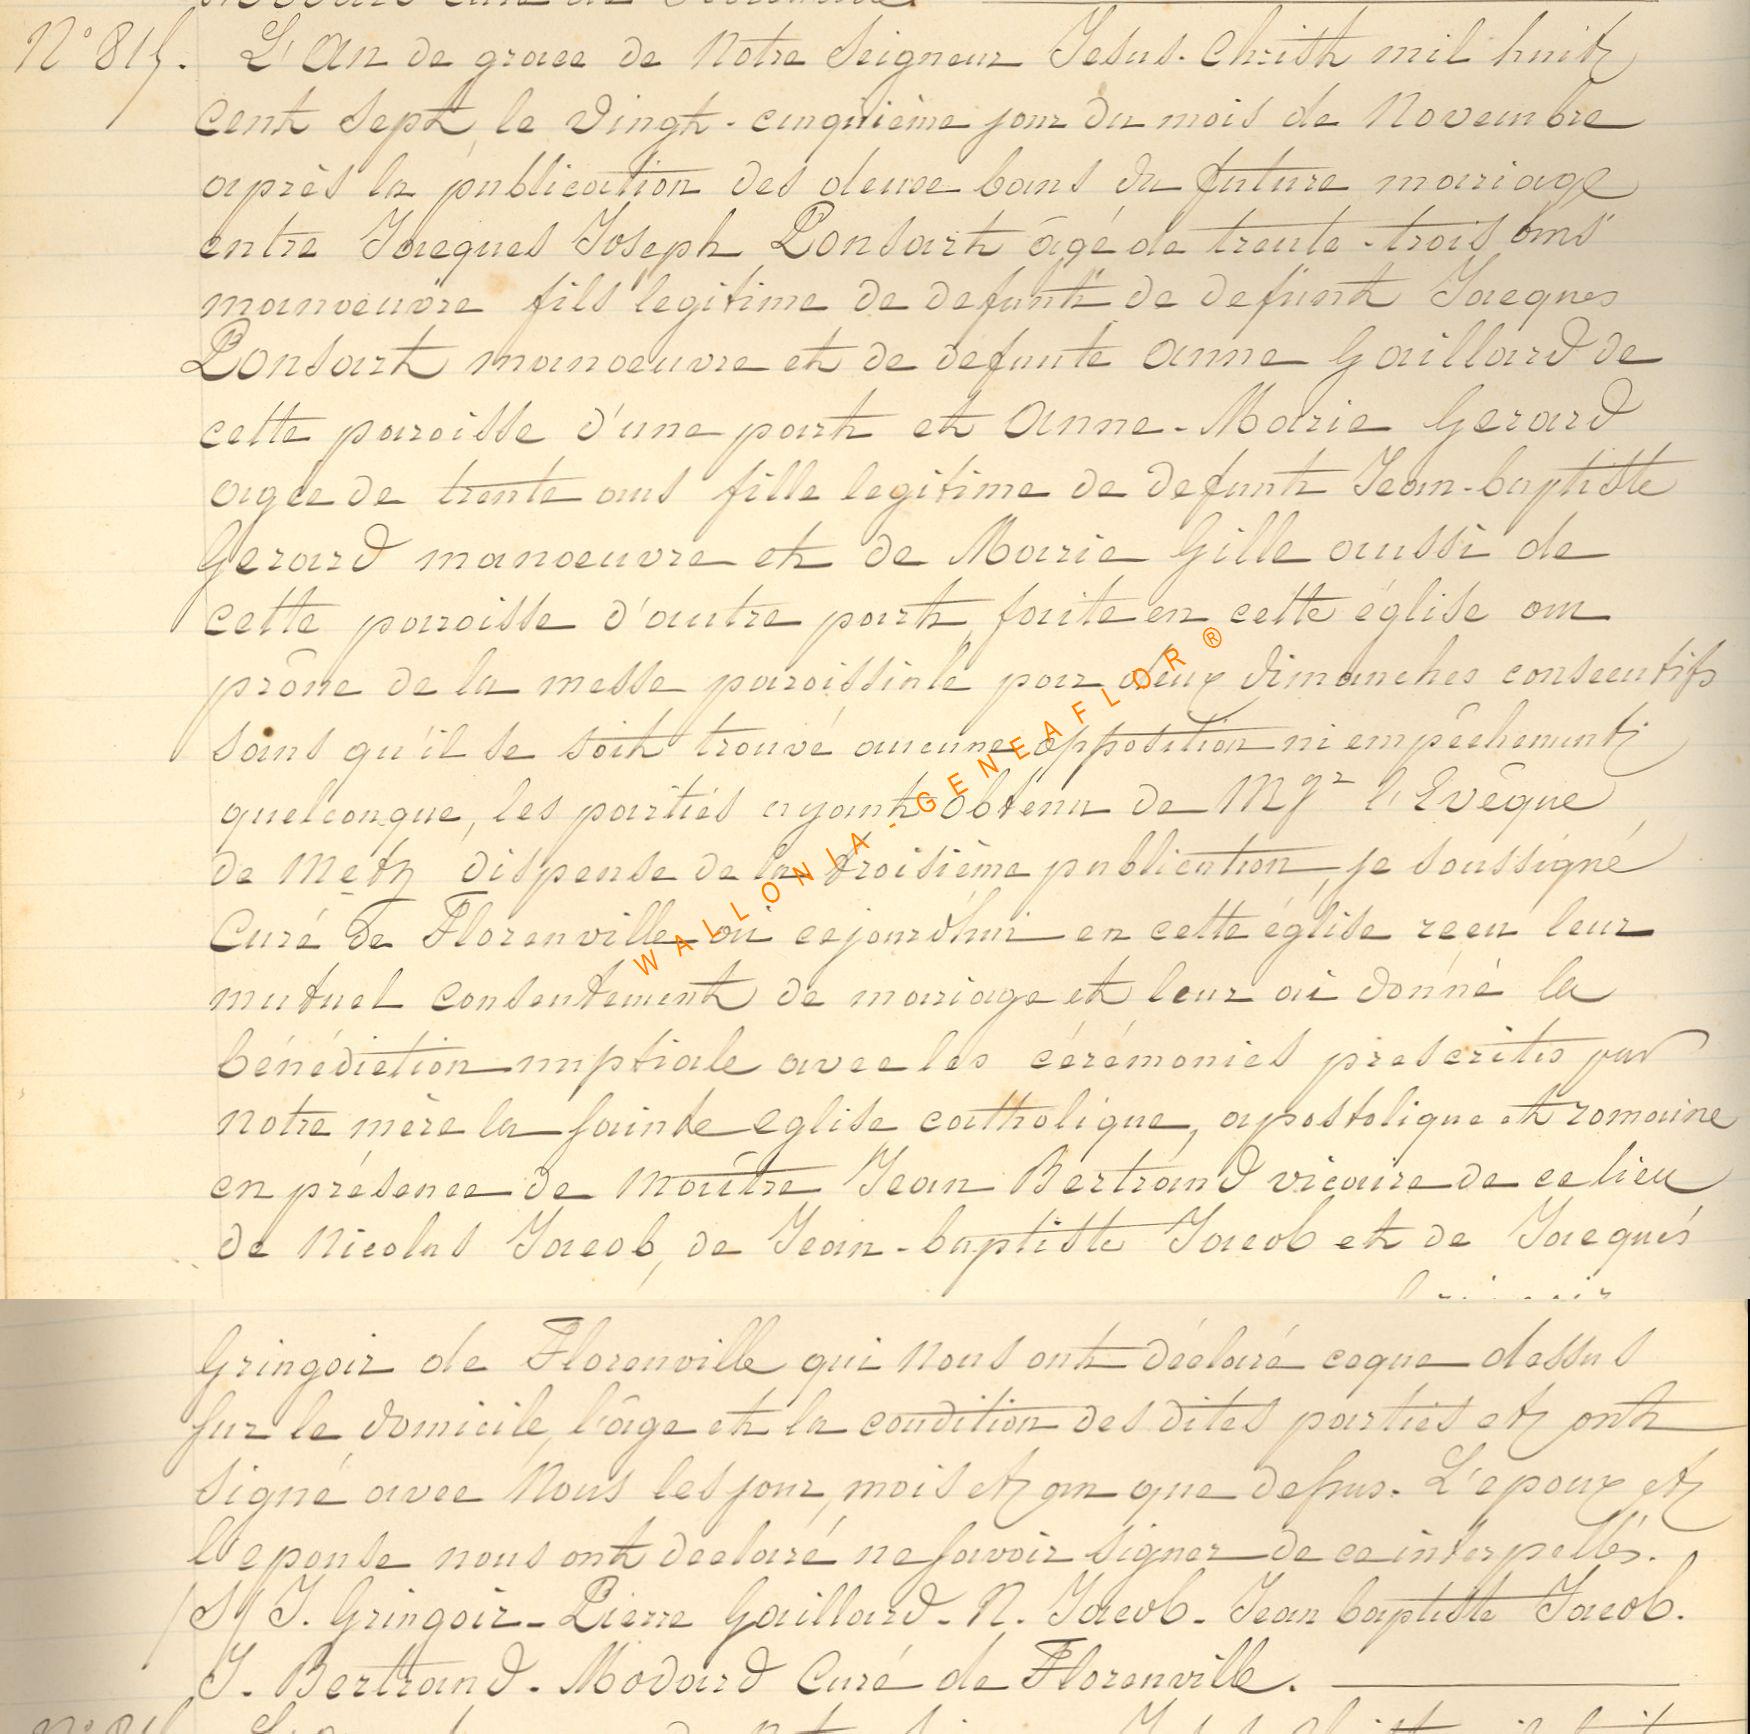 N° 815. L'An de grace de Notre Seigneur Jesus-Christ mil huit
cent sept, le vingt-cinquième jour du mois de Novembre
après la publication des deuxe bans du future mariage
entre Jacques Joseph Ponsart âgé de trente-trois ans
manoeuvre fils legitime de defunt de defunt Jacques
Ponsart manoeuvre et de defunte Anne Gaillard de
cette paroisse d'une part et Anne-Marie Gerard
agée de trente ans fille legitime de defunt Jean-baptiste
Gerard manoeuvre et de Marie Gille aussi de
cette paroisse d'autre part, faite en cette église au
prône de la messe paroissiale par deux dimanches consecutifs
sans qu'il se soit trouvé aucune opposition ni empêchement
quelconque, les parties ayant obtenu de Mgr l'Evêque
de Metz dispense de la troisième publication, je soussigné
Curé de Florenville ai cejourd'hui en cette église recu leur
mutuel consentement de mariage et leur ai donné la
bénédiction nuptiale avec les cérémonies prescrites par
notre mère la Sainte eglise catholique, apostolique et romaine
en présence de Maître Jean Bertrand vicaire de ce lieu
de Nicolas Jacob, de Jean-baptiste Jacob et de Jacques
Gringoir de Florenville qui nous ont déclaré ceque dessus
sur le domicile, l'âge et la condition des dites parties et ont
signé avec Nous les jour, mois et an que dessus. L'epoux et
l'epouse nous ont declaré ne savoir signer de ce interpellés.
/S/ J. Gringoir - Pierre Gaillard - N. Jacob - Jean baptiste Jacob.
J. Bertrand - Modard Curé de Florenville.
WALLONIA-GENEAFLOR®